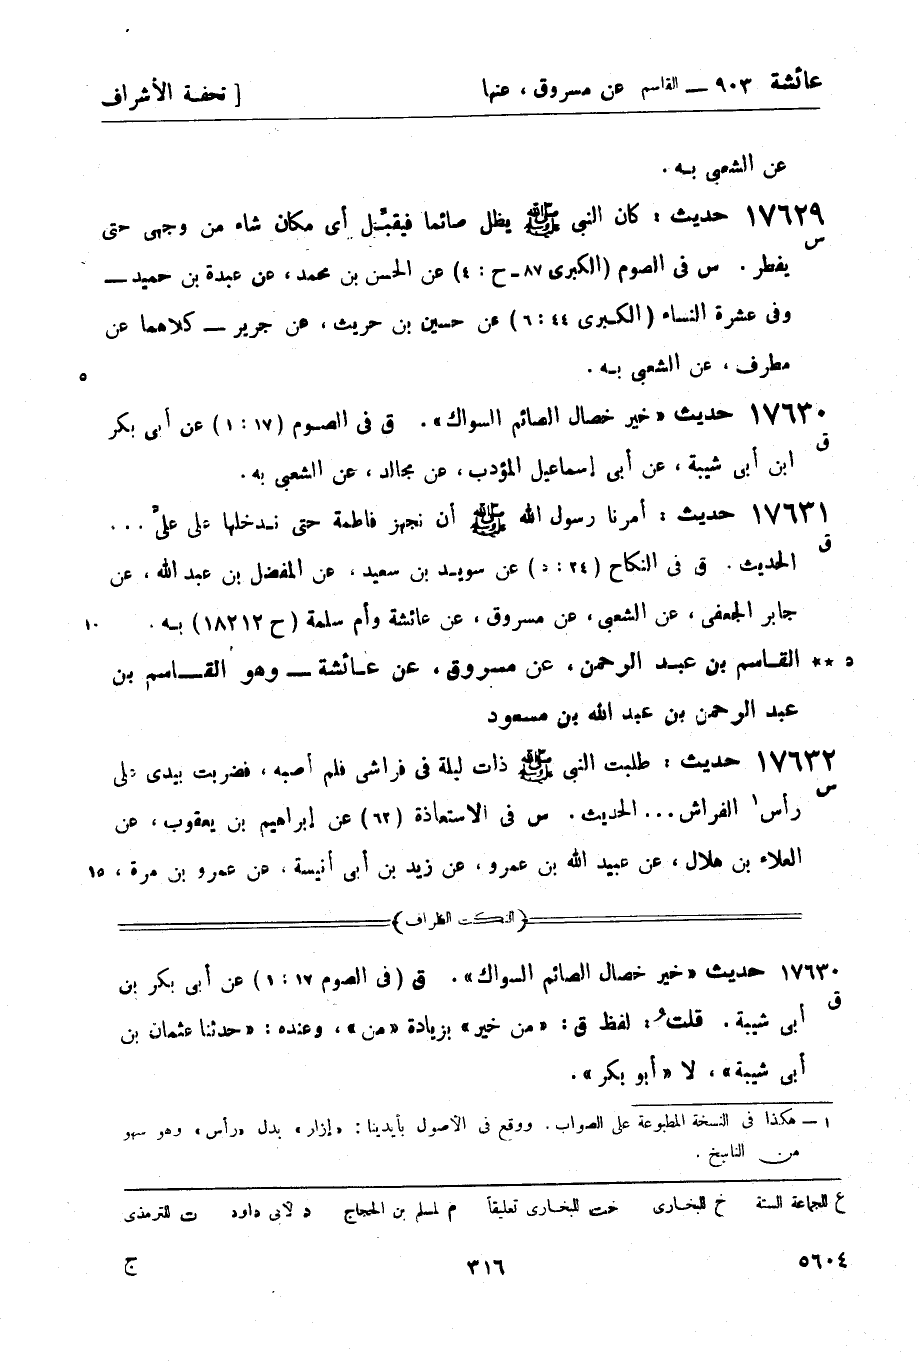 عائشة ٩٠٣ — القاسم عن مسروق ، عنها [ تحفة الأشراف
عن الشعبى بـه .
١٧٦٢٩ حديث : كان النبى ﷺ يظل صائما فيقبّل أى مكان شاء من وجهى حتى
س
يفطر . س فى الصوم (الكبرى ٨٧ ـ ح : ٤) عن الحسن بن محمد ، عن عبدة بن حميد —
وفى عشرة النساء ( الكبرى ٤٤ : ٦ ) عن حسين بن حريث ، عن جرير — كلاهما عن
مطرف ، عن الشعبى بـه . ٥
١٧٦٣٠ حديث « خير خصال الصائم السواك » . ق فى الصوم (١٧ : ١ ) عن أبى بكر
ق
ابن أبى شيبة ، عن أبى إسماعيل المؤدب ، عن مجالد ، عن الشعبى به .
١٧٦٣١ حديث : أمرنا رسول الله ﷺ أن نجهز فاطمة حتى ندخلها على علىّ ...
ق
الحديث . ق فى النكاح (٢٤ : ٥) عن سويد بن سعيد ، عن المفضل بن عبد الله ، عن
جابر الجعفى ، عن الشعبى ، عن مسروق ، عن عائشة وأم سلمة ( ح ١٨٢١٢) بـه . ١٠
د ** القاسم بن عبد الرحمن ، عن مسروق ، عن عائشة — وهو القاسم بن
عبد الرحمن بن عبد الله بن مسعود
١٧٦٣٢ حديث : طلبت النبى ﷺ ذات ليلة فى فراشى فلم أصبه ، فضربت بيدى على
س
رأس ١ الفراش ... الحديث . س فى الاستعاذة (٦٢) عن إبراهيم بن يعقوب ، عن
العلاء بن هلال ، عن عبيد الله بن عمرو ، عن زيد بن أبى أنيسة ، عن عمرو بن مرة ، ١٥
﴿النكت الظراف﴾
١٧٦٣٠ حديث « خير خصال الصائم السواك » . ق (فى الصوم ١٧ : ١ ) عن أبى بكر بن
ق
أبى شيبة . قلتُ : لفظ ق : « من خير » بزيادة « من » ، وعنده : « حدثنا عثمان بن
أبى شيبة » ، لا « أبو بكر » .
١ — هكذا فى النسخة المطبوعة على الصواب . ووقع فى الأصول بأيدينا : « إزار » بدل « رأس » وهو سهو
من الناسخ .
ع للجماعة الستة خ للبخارى خت للبخارى تعليقاً م لمسلم بن الحجاج د لأبى داود ت للترمذى
٥٦٠٤ ٣١٦ ج